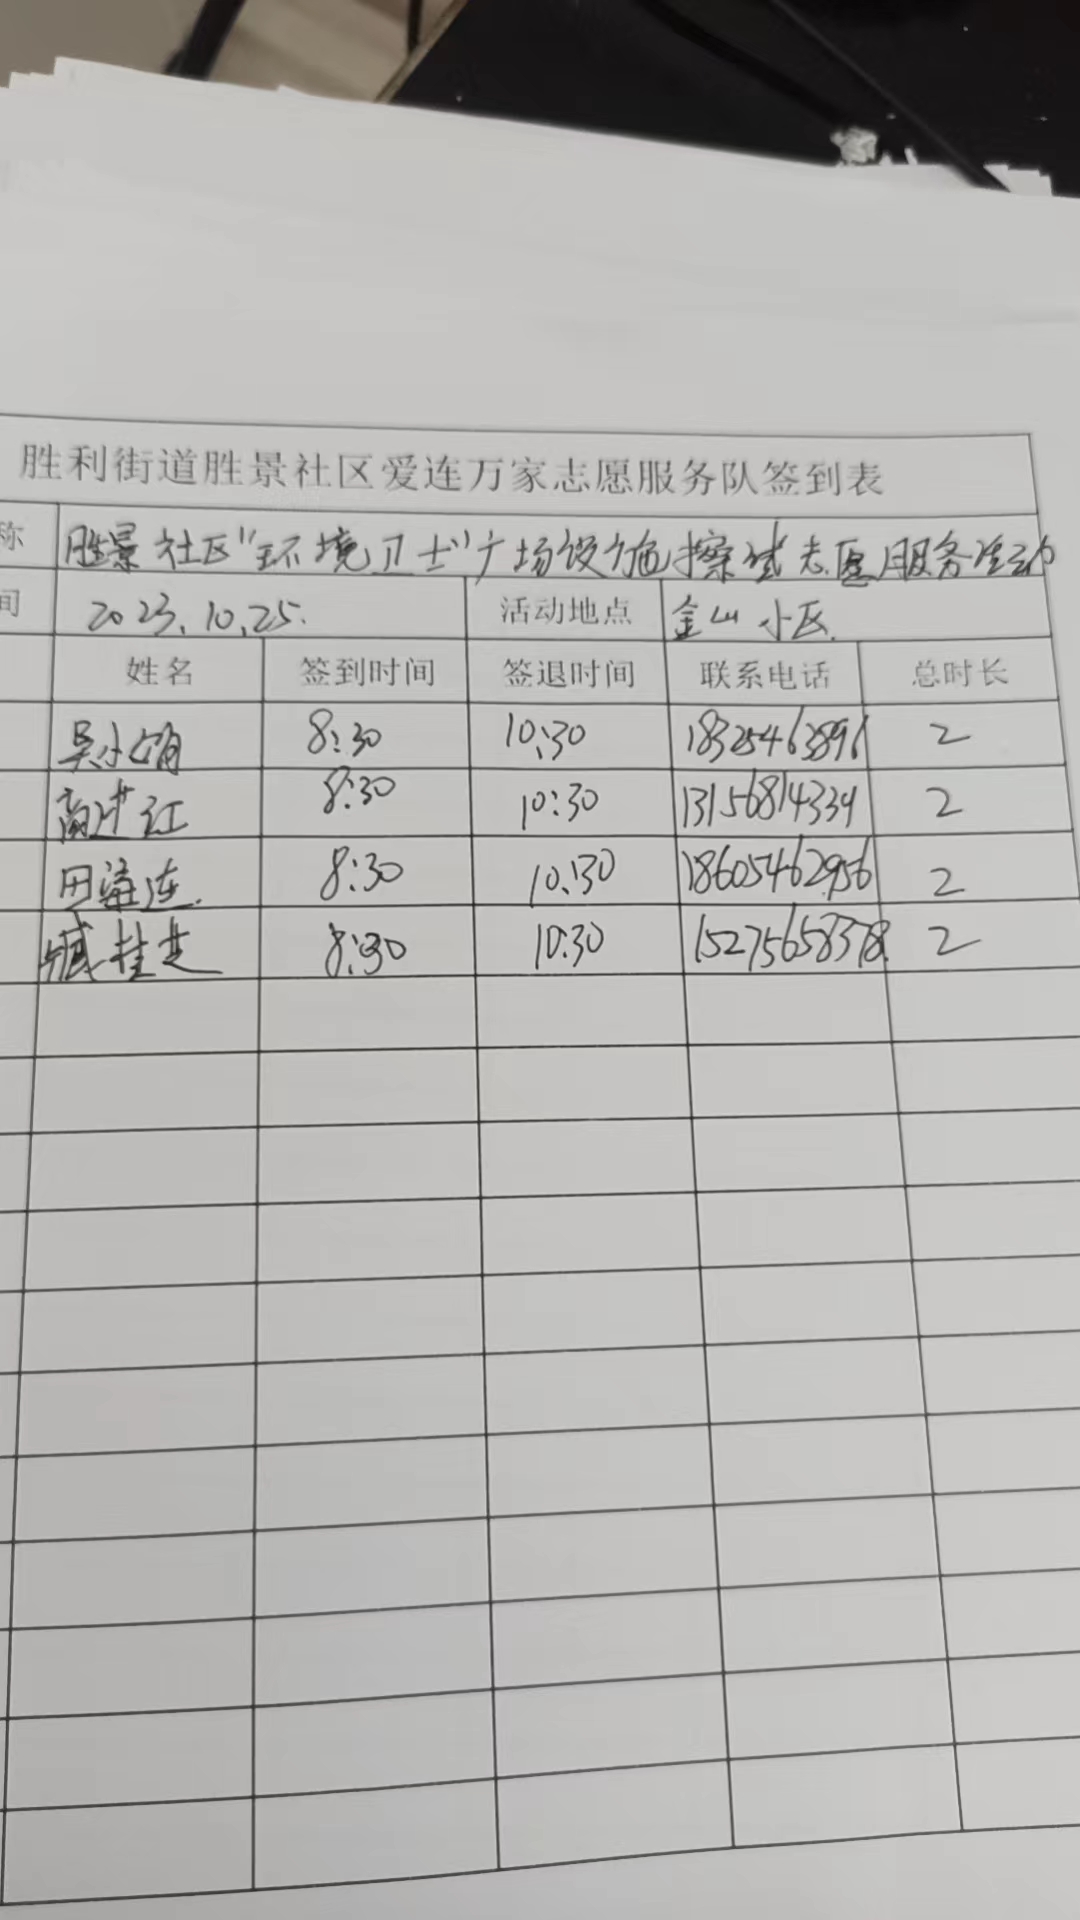 胜利街道胜景社区爱连万家志愿服务队签到表
称 胜景社区"环境卫士"广场设施擦拭志愿服务活动
间 2023.10.25. 活动地点 金山小区.
姓名 签到时间 签退时间 联系电话 总时长
吴小娟 8:30 10:30 18325463896 2
红 8:30 10:30 13156814334 2
田 连. 8:30 10:30 18605462956 2
臧桂 8:30 10:30 15275658378. 2